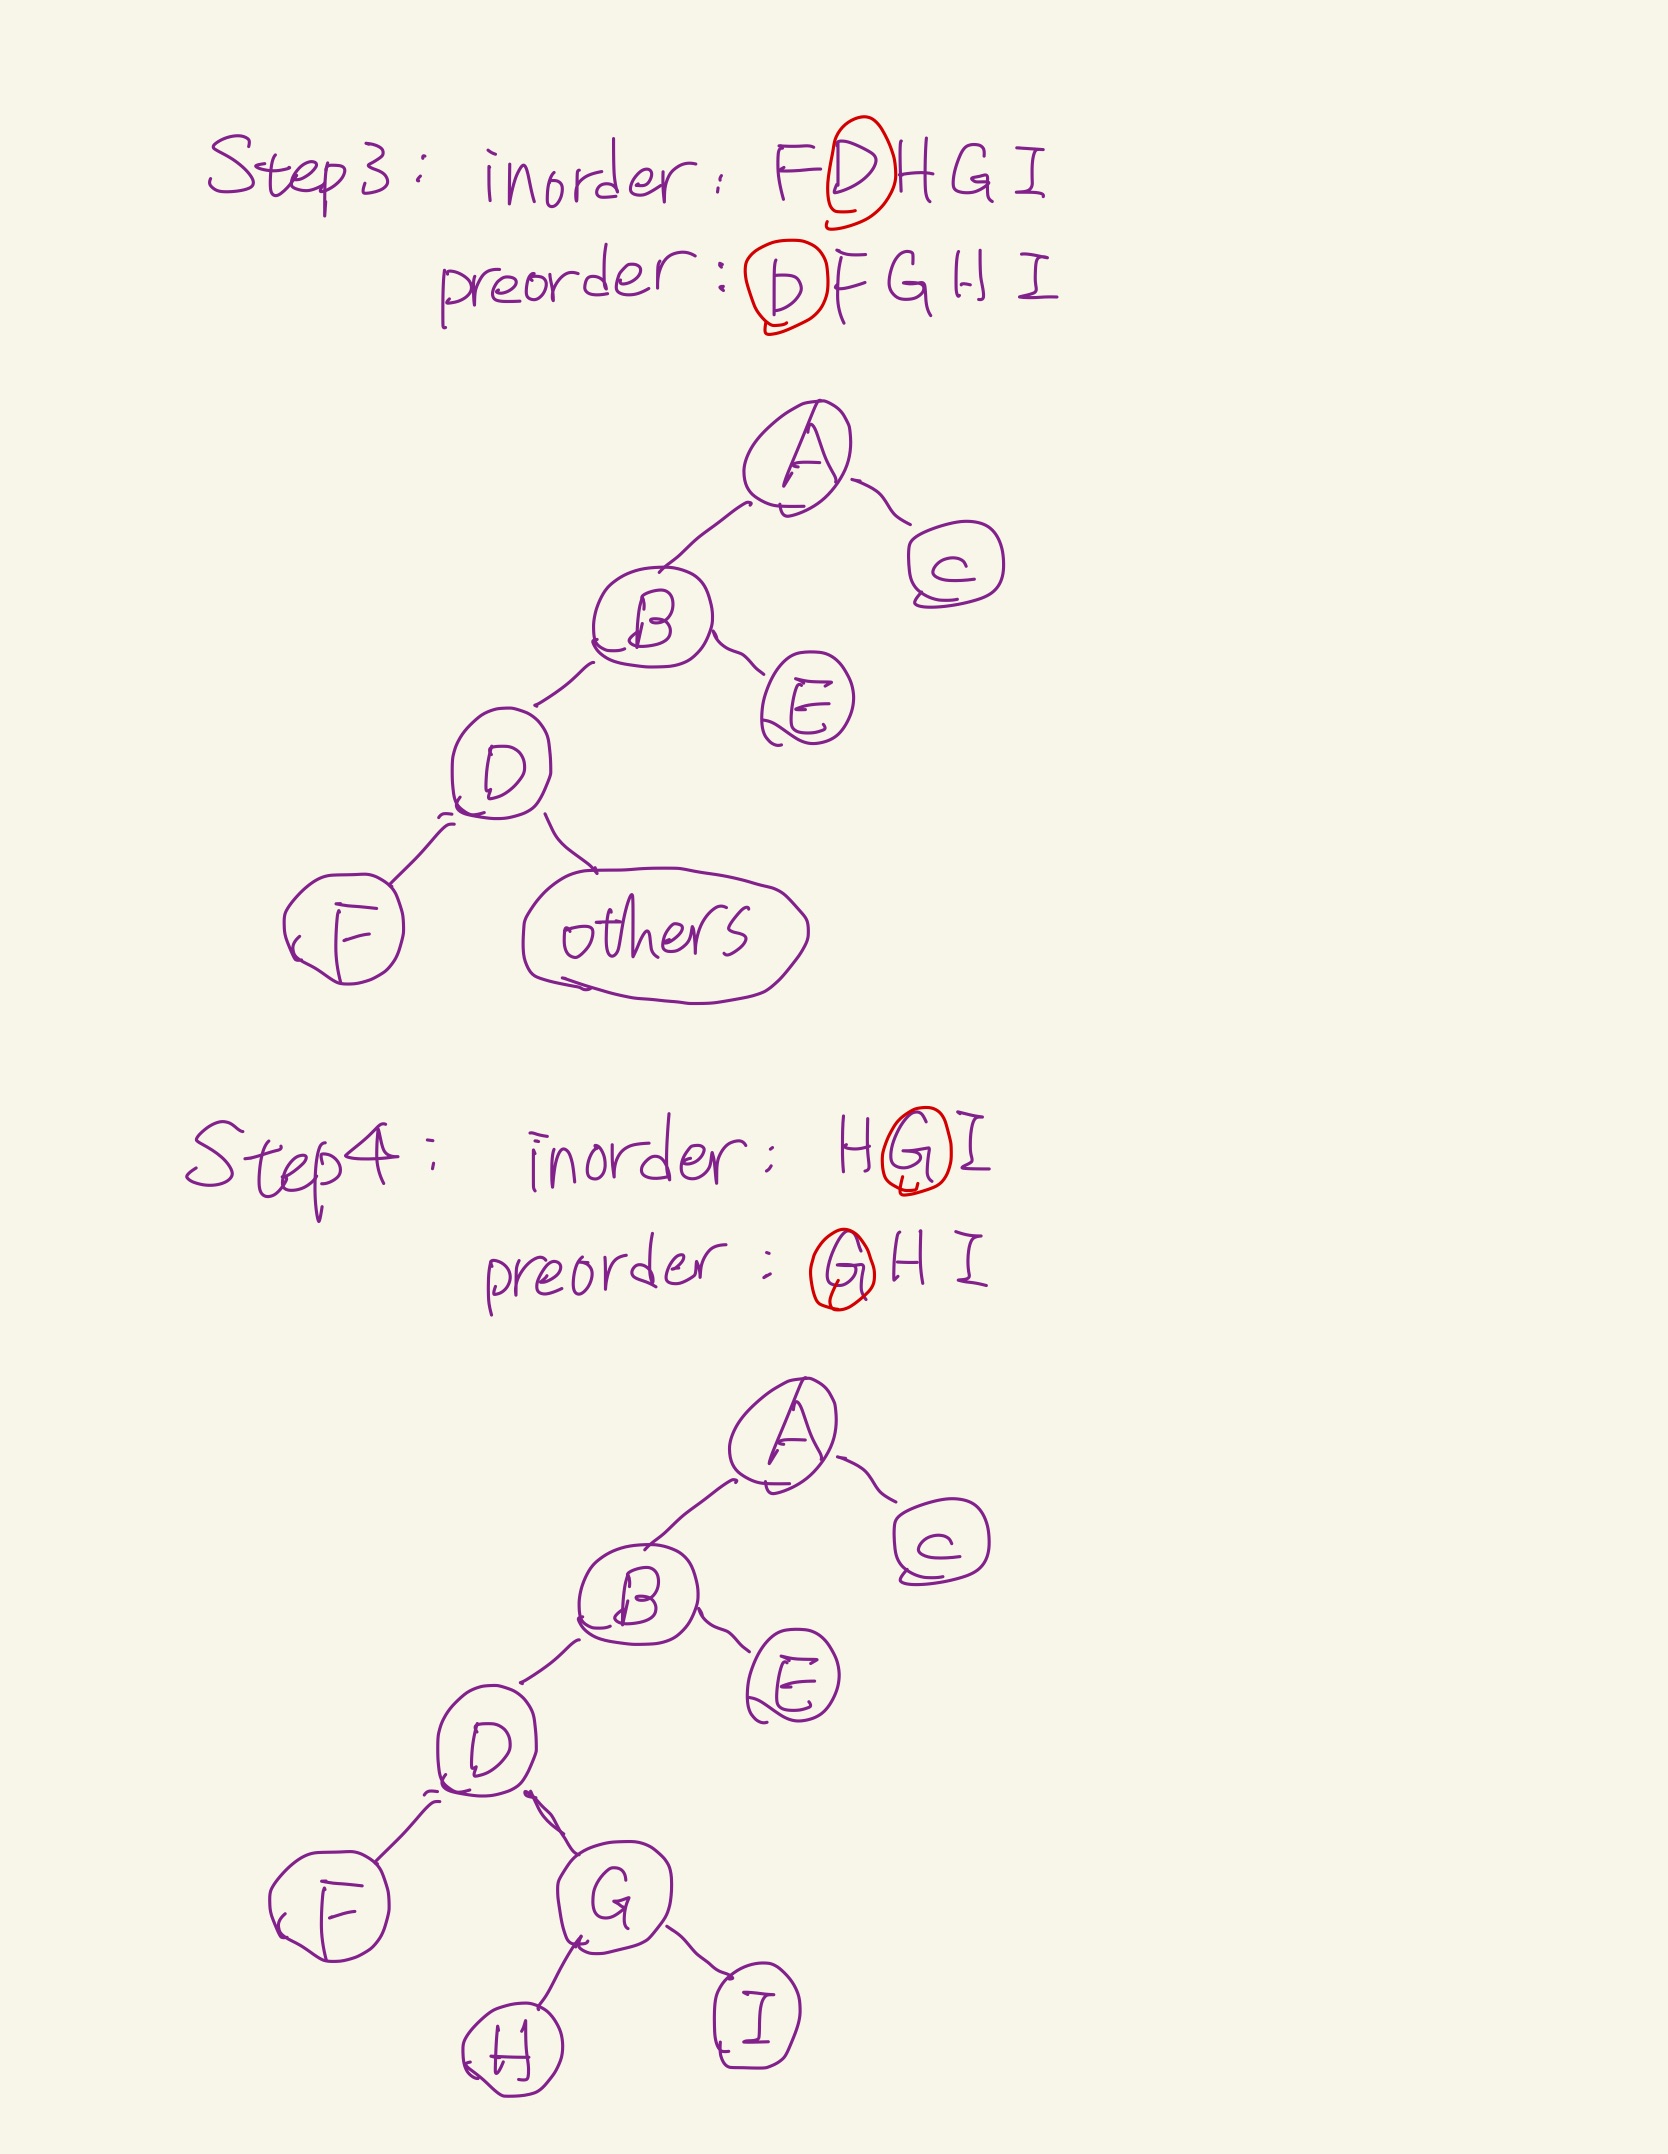 Step3: inorder: FDHGI
preorder: DFGHI
A
C
B
E
D
F
others
Step4: inorder: HGI
preorder: GHI
A
C
B
E
D
F
G
H
I